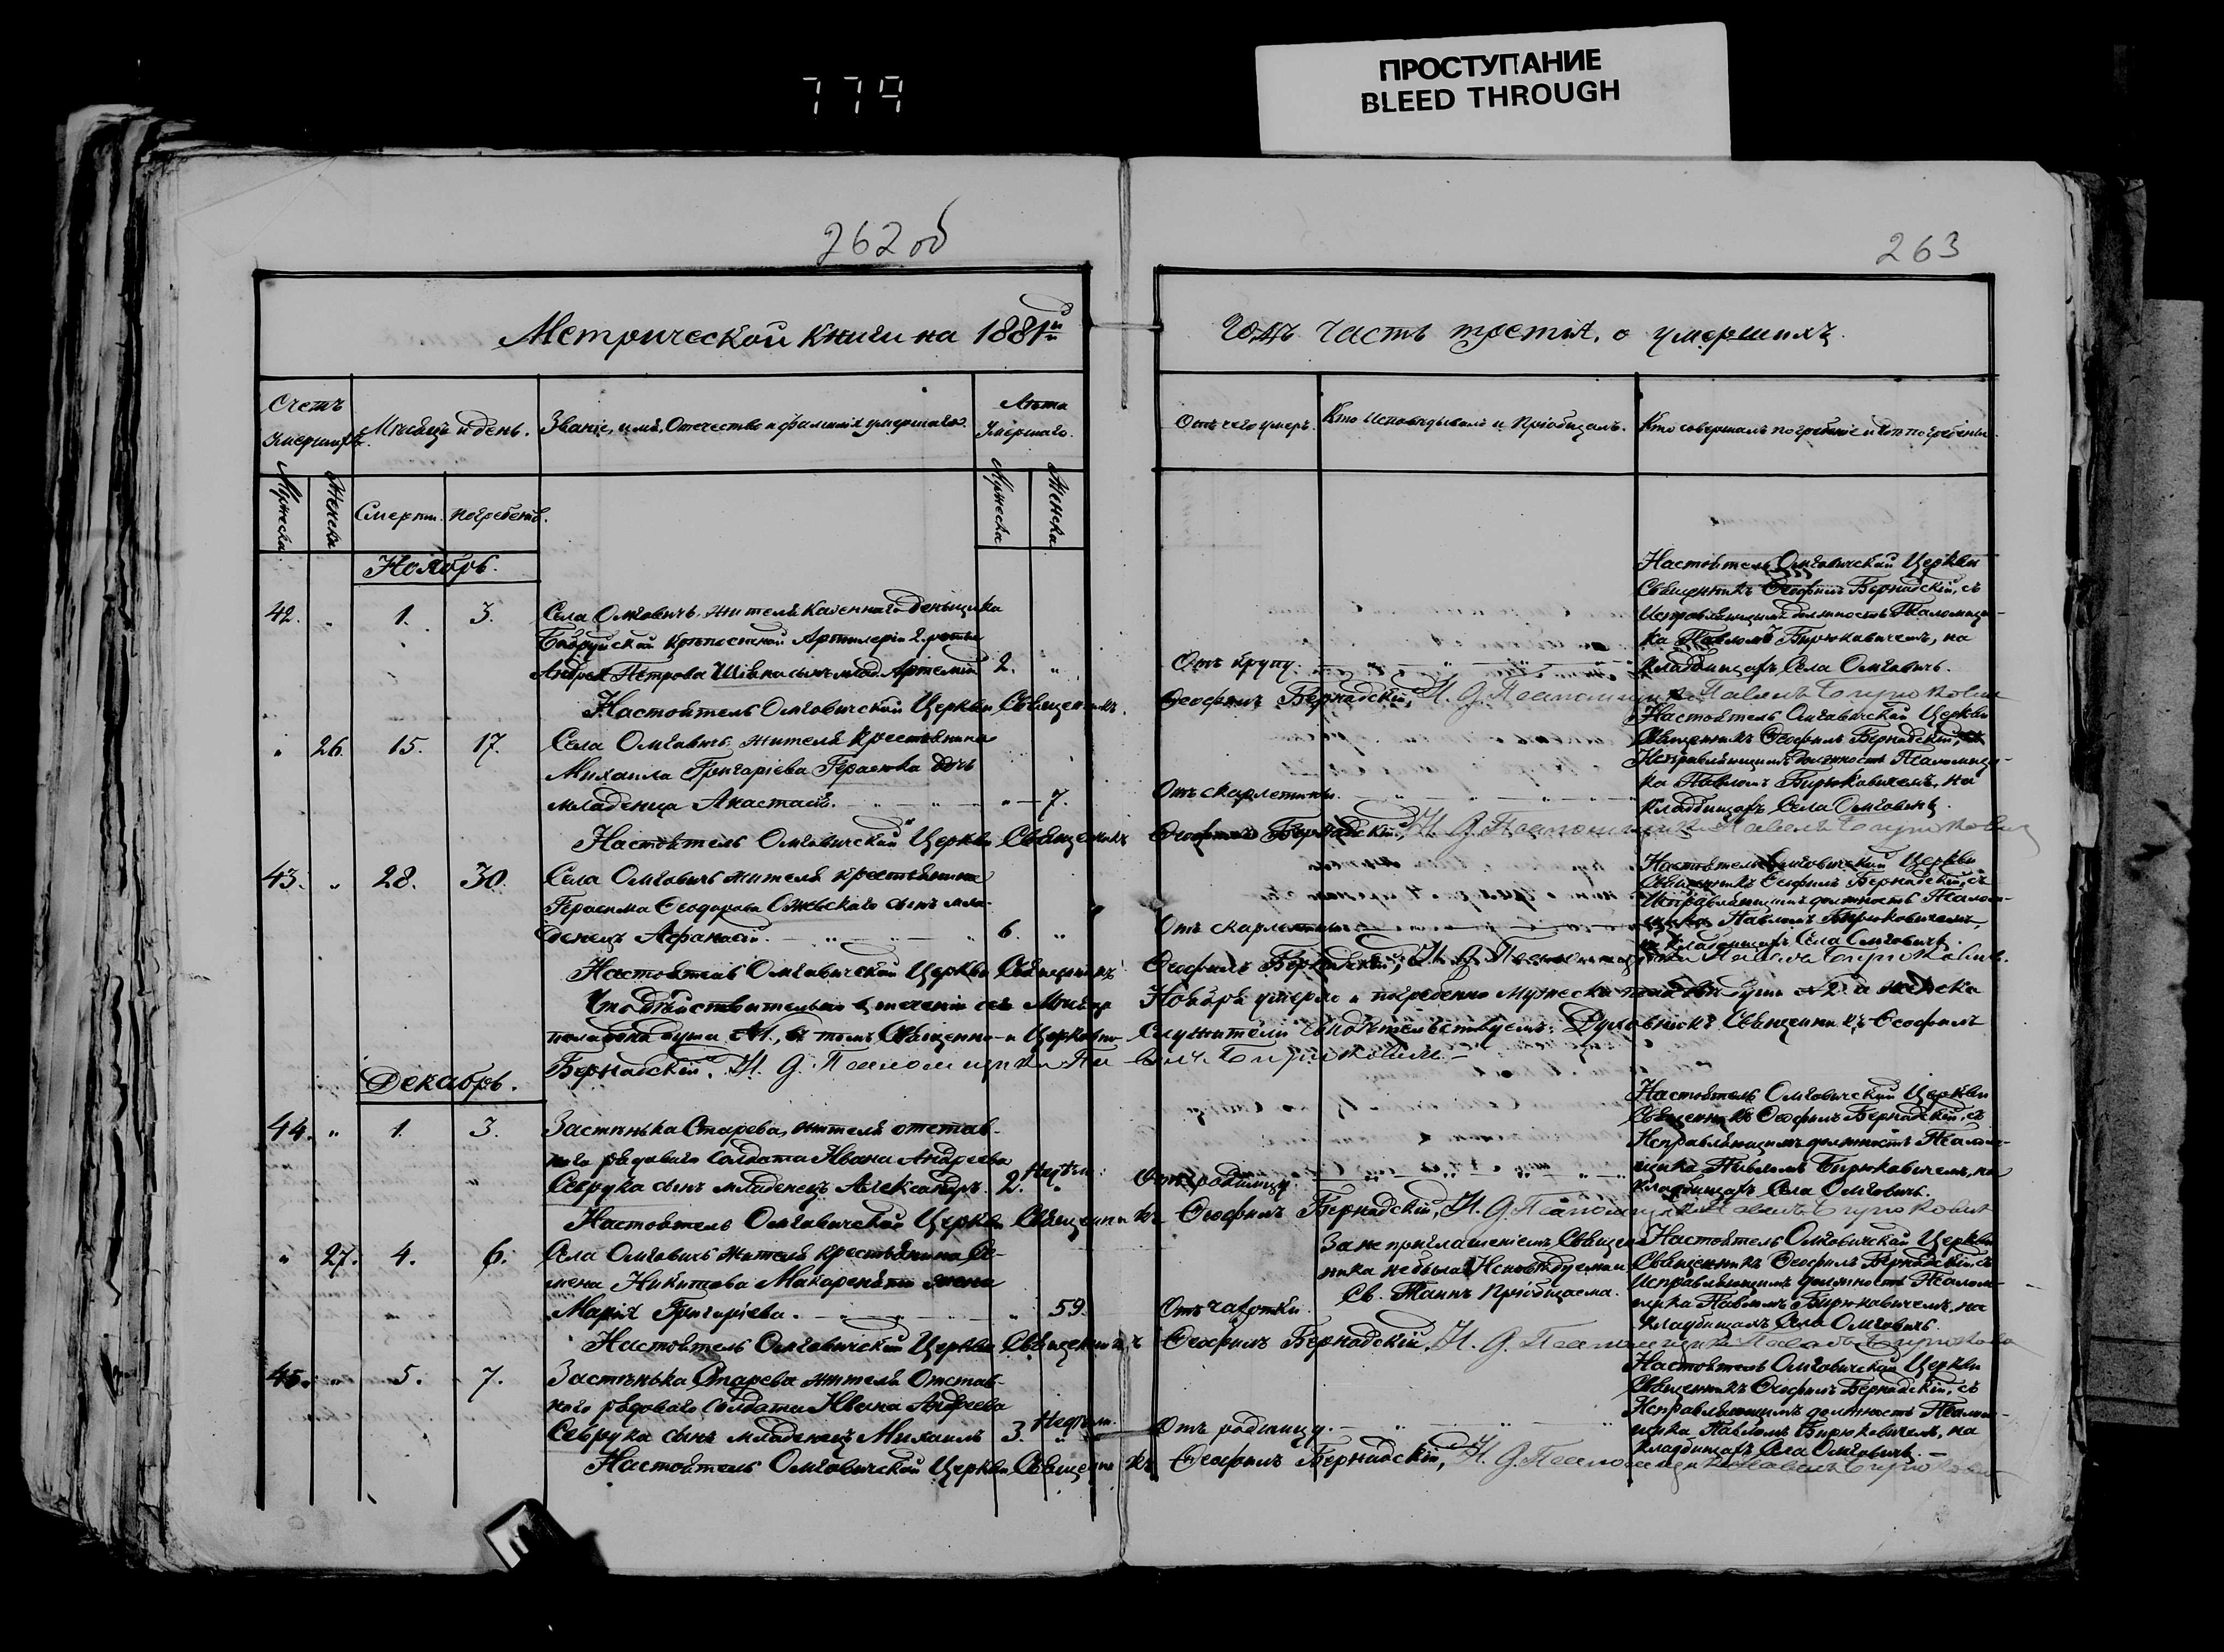 779
ПРОСТУПАНИЕ
BLEED THROUGH
262 об
263
Метрической книги на 1881й
годъ часть третія, о умершихъ
Счетъ умершихъ.
Мѣсяцъ и день.
Званіе, имя, отечество и фамилія умершаго.
Лѣта умершаго.
Отъ чего умеръ.
Кто исповѣдывалъ и пріобщалъ.
Кто совершалъ погребеніе и гдѣ погребены.
Мужеска
Женска
Смерти.
погребенія.
Мужеска
Женска
Ноябрь.
42. " 1. 3.
Села Омговичъ, жителя казеннаго деньщика
Бобруйской крѣпостной Артилеріи 2. роты
Андрея Петрова сынъ млад. Артемій 2. "
Отъ крупу.
Настоятель Омговичской Церкви
Священникъ Ѳеофилъ Бернадскій, съ
Исправляющимъ должность Псаломщи-
ка Павломъ Бирюковичемъ, на
кладбищахъ Села Омговичъ.
Настоятель Омговичской Церкви Священникъ Ѳеофилъ Бернадскій, И. д. Псаломщика Павелъ Бирюковичъ
" 26. 15. 17.
Села Омговичъ, жителя крестьянина
Михаила Григоріева Герасюка дочь
младенца Анастасія. " 7.
Отъ скарлетины.
Настоятель Омговичской Церкви
Священникъ Ѳеофилъ Бернадскій, съ
Исправляющимъ должность Псаломщи-
ка Павломъ Бирюковичемъ, на
кладбищахъ Села Омговичъ.
Настоятель Омговичской Церкви Священникъ Ѳеофилъ Бернадскій, И. д. Псаломщика Павелъ Бирюковичъ
43. " 28. 30.
Села Омговичъ жителя крестьянина
Герасима Ѳеодорова сынъ мла-
денецъ Афанасій. 6. "
Отъ скарлетины
Настоятель Омговичской Церкви
Священникъ Ѳеофилъ Бернадскій, съ
Исправляющимъ должность Псалом-
щика Павломъ Бирюковичемъ,
на кладбищахъ Села Омговичъ.
Настоятель Омговичской Церкви Священникъ Ѳеофилъ Бернадскій, И. д. Псаломщика Павелъ Бирюковичъ.
Что дѣйствительно въ теченіи сего Мѣсяца Ноября умерло и погребено мужеска пола душъ 2. а женска
пола одна душа 1., въ томъ Священно- и Церковно- Служители свидѣтельствуемъ: Духовникъ Священникъ Ѳеофилъ
Бернадскій. И. д. Псаломщика Павелъ Бирюковичъ.
Декабрь.
44. " 1. 3.
Застѣнька Старева, жителя отстав-
ного рядоваго Солдата Ивана Андреева
Севрука сынъ младенецъ Александръ. 2. Недѣли.
Отъ родимцу.
Настоятель Омговичской Церкви
Священникъ Ѳеофилъ Бернадскій, съ
Исправляющимъ должность Псалом-
щика Павломъ Бирюковичемъ, на
кладбищахъ Села Омговичъ.
Настоятель Омговичской Церкви Священникъ Ѳеофилъ Бернадскій, И. д. Псаломщика Павелъ Бирюковичъ
" 27. 4. 6.
Села Омговичъ жителя крестьянина Се-
мена Никитова жена
Марія Григоріева. " 59.
Отъ чахотки.
За не приглашеніемъ Священ-
ника не была Исповѣдуема и
Св. Таинъ пріобщаема.
Настоятель Омговичской Церкви
Священникъ Ѳеофилъ Бернадскій съ
Исправляющимъ должность Псалом-
щика Павломъ Бирюковичемъ, на
кладбищахъ Села Омговичъ.
Настоятель Омговичской Церкви Священникъ Ѳеофилъ Бернадскій, И. д. Псаломщика Павелъ Бирюковичъ
45. " 5. 7.
Застѣнька Старева жителя Отстав-
ного рядоваго Солдата Ивана Андреева
Севрука сынъ младенецъ Михаилъ 3. Недѣли.
Отъ родимцу.
Настоятель Омговичской Церкви
Священникъ Ѳеофилъ Бернадскій, съ
Исправляющимъ должность Псалом-
щика Павломъ Бирюковичемъ, на
кладбищахъ Села Омговичъ.
Настоятель Омговичской Церкви Священникъ Ѳеофилъ Бернадскій, И. д. Псаломщика Павелъ Бирюковичъ